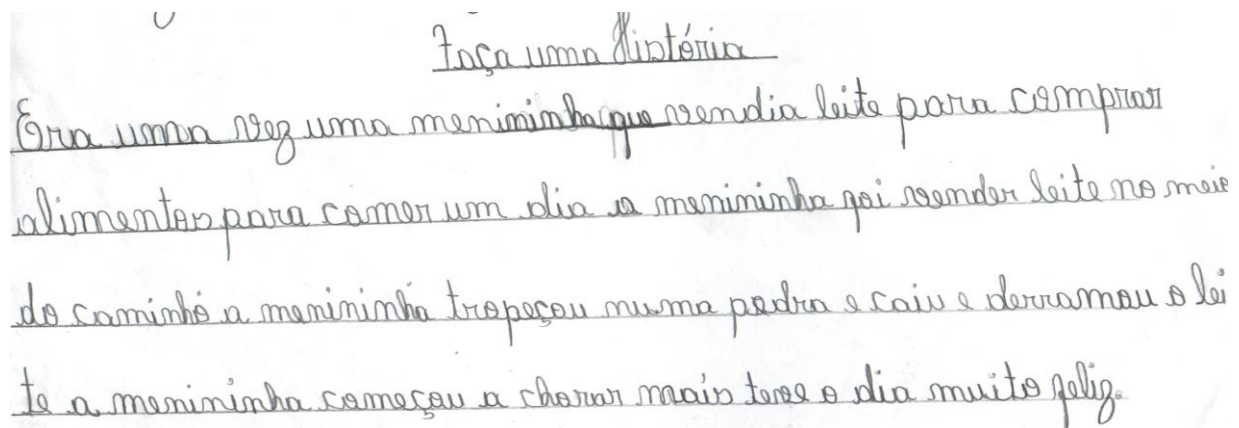 Faça uma História
Era uma vez uma menininha que vendia leite para comprar
alimentos para comer um dia a menininha foi vender leite no meio
do caminho a menininha tropeçou numa pedra e caiu e derramou o lei
te a menininha começou a chorar mais teve o dia muito feliz.